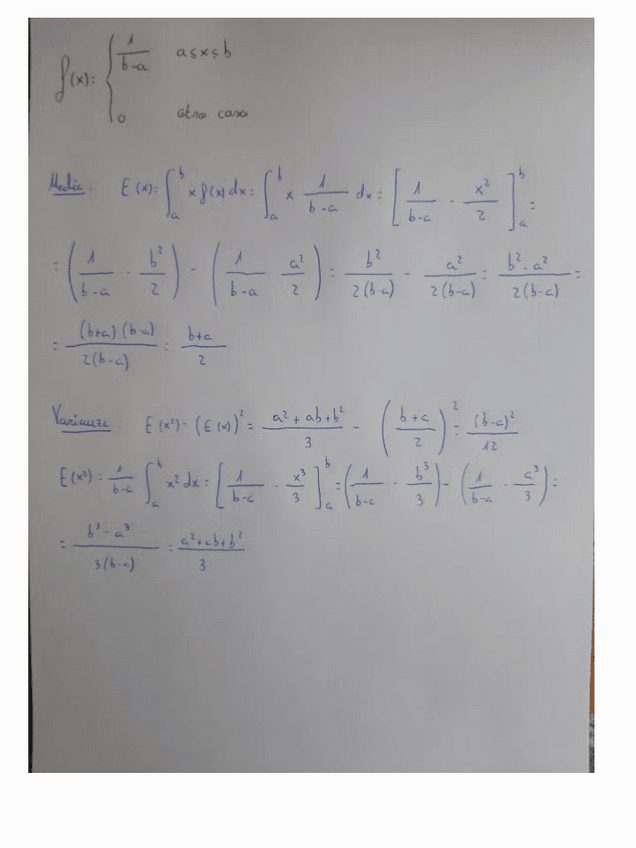 f(x) = { 1/(b-a)   a ≤ x ≤ b
0   otro caso
Media: E(x) = ∫_a^b x f(x) dx = ∫_a^b x 1/(b-a) dx = [ 1/(b-a) · x²/2 ]_a^b =
= ( 1/(b-a) · b²/2 ) - ( 1/(b-a) a²/2 ) = b²/2(b-a) - a²/2(b-a) = b²-a²/2(b-a) =
= (b+a)(b-a)/2(b-a) = b+a/2
Varianza: E(x²) - (E(x))² = a²+ab+b²/3 - ( b+a/2 )² = (b-a)²/12
E(x²) = 1/(b-a) ∫_a^b x² dx = [ 1/(b-a) · x³/3 ]_a^b = ( 1/(b-a) · b³/3 ) - ( 1/(b-a) · a³/3 ) =
= b³-a³/3(b-a) = a²+ab+b²/3